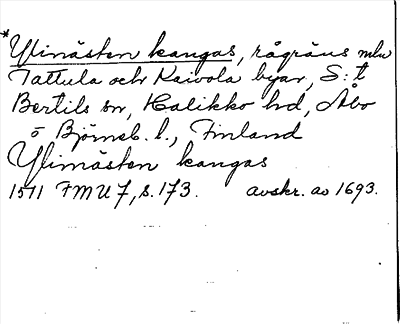 *Ylinästen kangas, rågräns mln
Tattula och Kaivola byar, S:t
Bertils sn, Halikko hd, Åbo
o Björneb. l., Finland
Ylinästen kangas
1571 FMU 7, s. 173. avskr. av 1693.